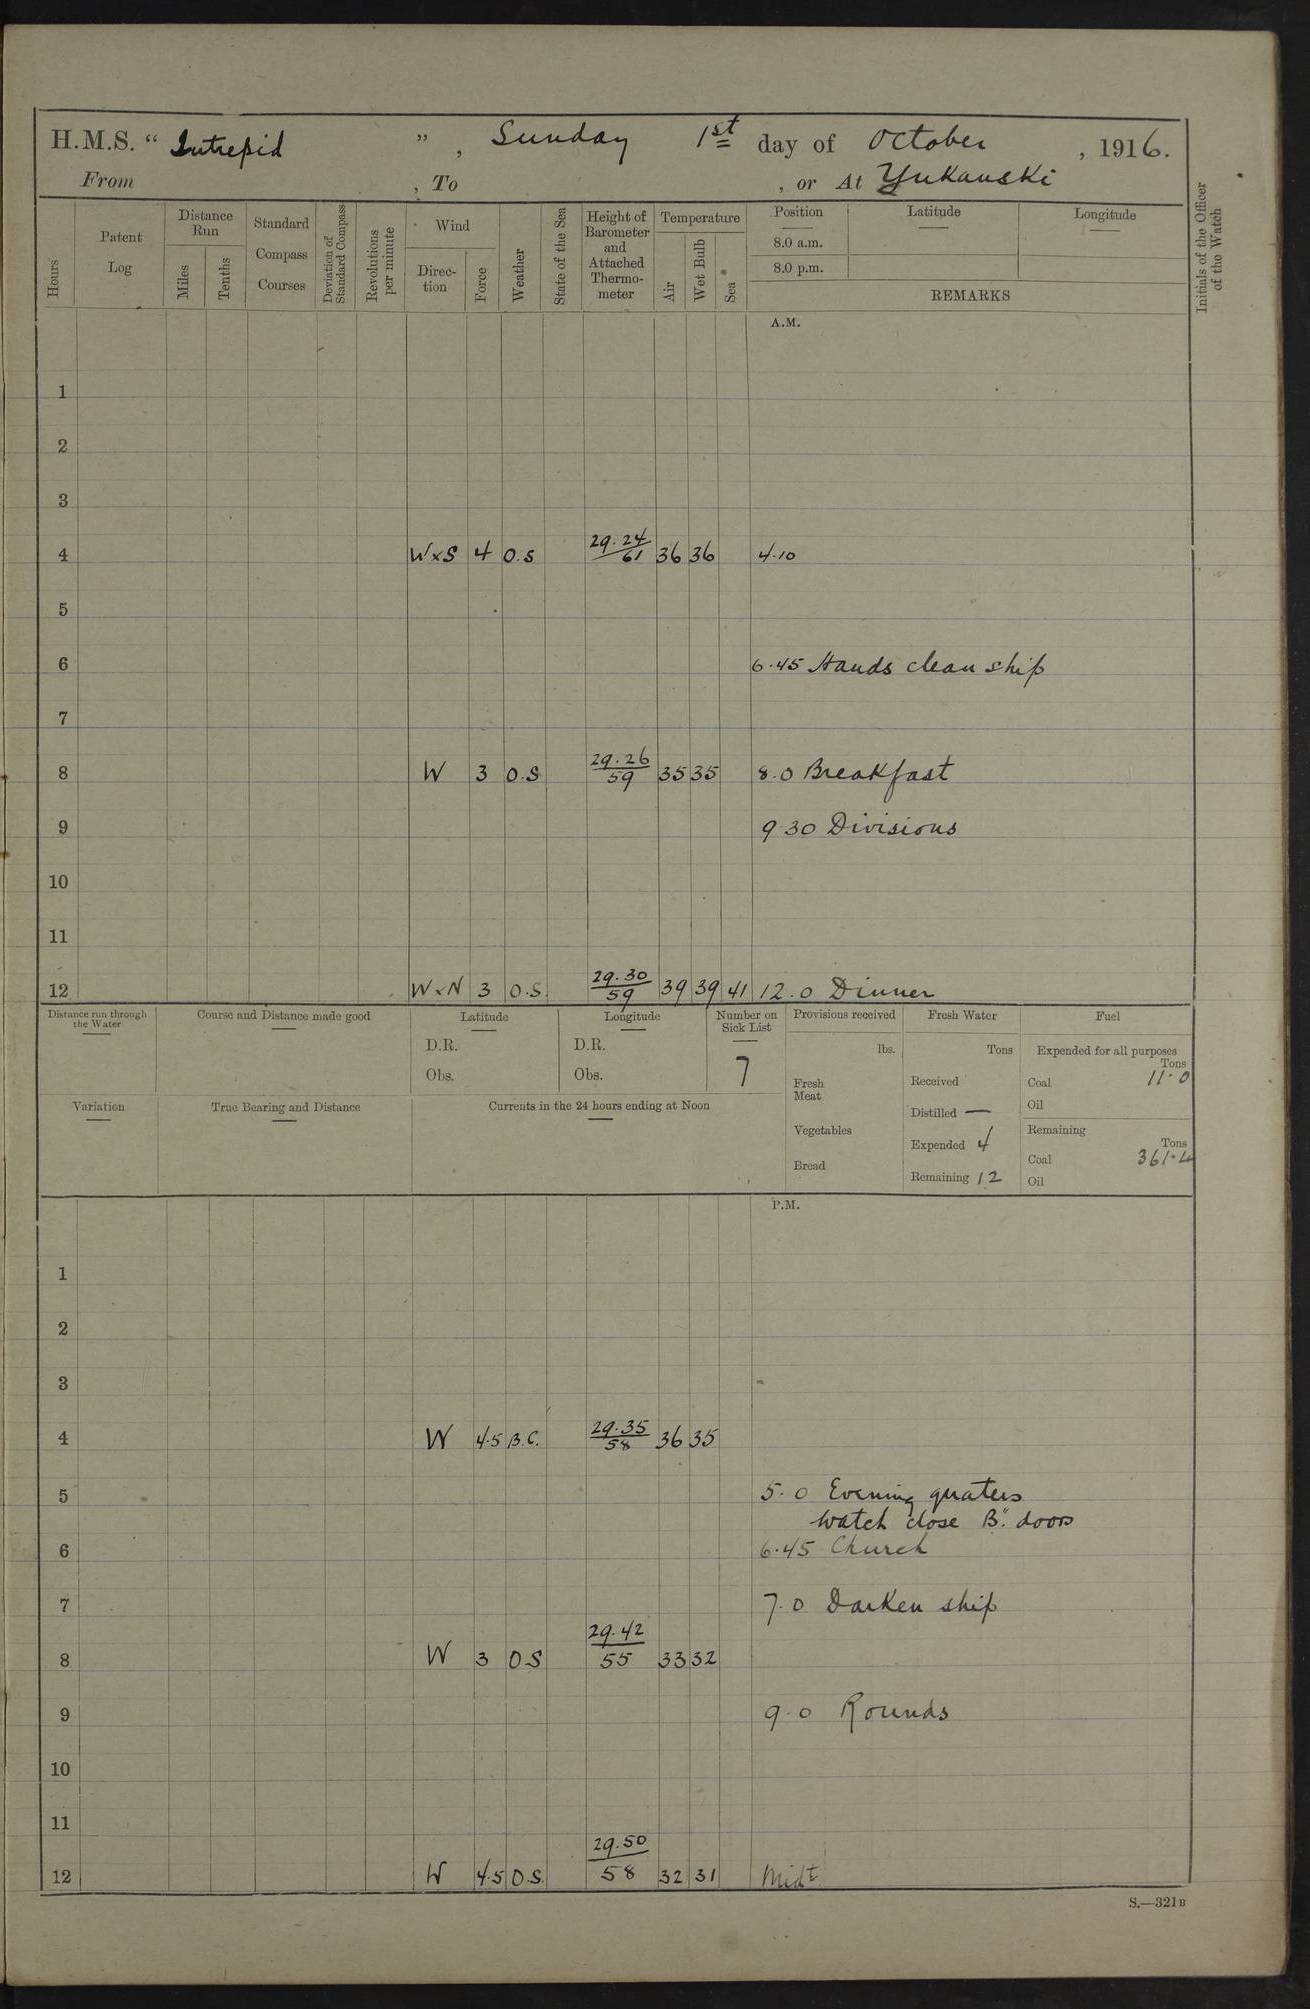 H.M.S. " Intrepid ", Sunday 1st day of October, 1916.
From , To , or At Yukanski
Hours
Patent Log
Distance Run
Miles
Tenths
Standard Compass Courses
Deviation of Standard Compass
Revolutions per minute
Wind
Direc-tion
Force
Weather
State of the Sea
Height of Barometer and Attached Thermo-meter
Temperature
Air
Wet Bulb
Sea
Position
Latitude
Longitude
8.0 a.m.
8.0 p.m.
REMARKS
Initials of the Officer of the Watch
A.M.
1
2
3
4 WxS 4 O.S 29.24/61 36 36 4.10
5
6 6.45 Hands clean ship
7
8 W 3 O.S 29.26/59 35 35 8.0 Breakfast
9 9 30 Divisions
10
11
12 WxN 3 O.S. 29.30/59 39 39 41 12.0 Dinner
Distance run through the Water
Course and Distance made good
Latitude
D.R.
Obs.
Longitude
D.R.
Obs.
Number on Sick List
7
Provisions received
lbs.
Fresh Meat
Vegetables
Bread
Fresh Water
Tons
Received
Distilled —
Expended 4
Remaining 12
Fuel
Expended for all purposes
Tons
Coal 11.0
Oil
Remaining
Tons
Coal 361.4
Oil
Variation
True Bearing and Distance
Currents in the 24 hours ending at Noon
P.M.
1
2
3
4 W 4.5 B.C. 29.35/58 36 35
5 5.0 Evening quaters
watch close B". doors
6 6.45 Church
7 7.0 Darken ship
8 W 3 O S 29.42/55 33 32
9 9.0 Rounds
10
11
12 W 4.5 O.S. 29.50/58 32 31 Midt
S.—321B